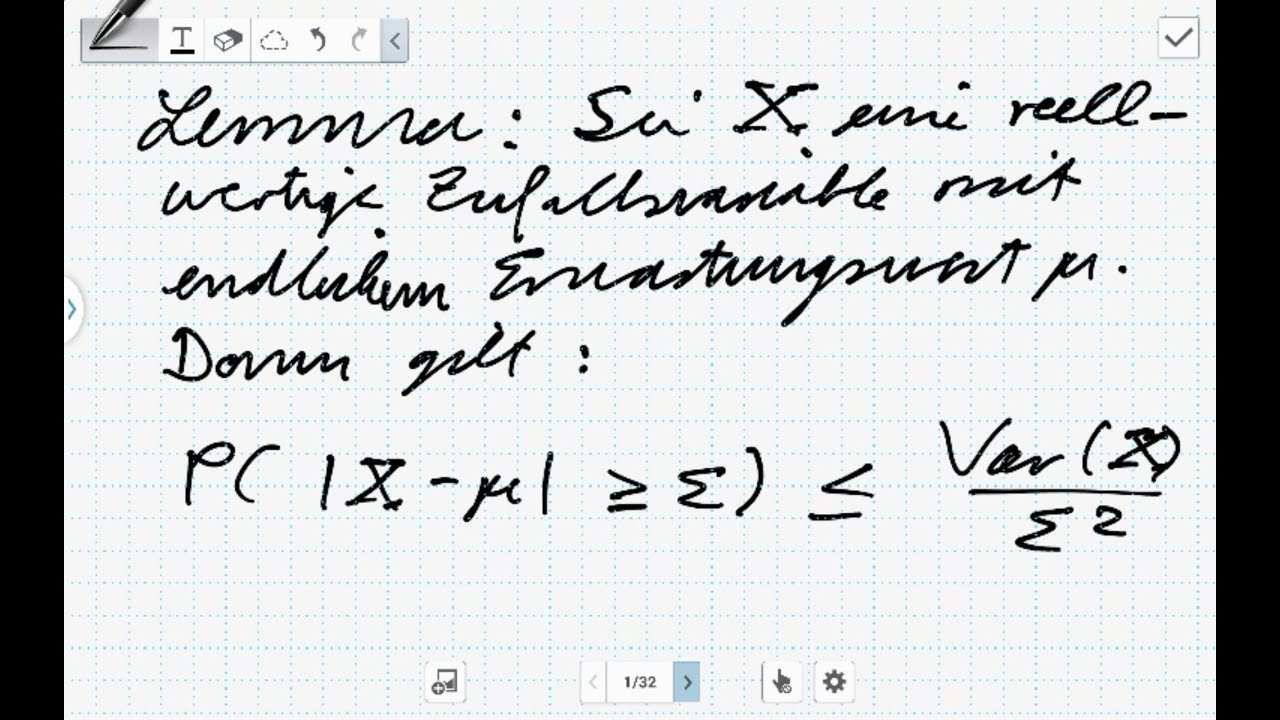 T
Lemma: Sei X eine reell-
wertige Zufallsvariable mit
endlichem Erwartungswert μ.
Dann gilt:
P( |X - μ| ≥ ε) ≤ Var(X) / ε²
1/32